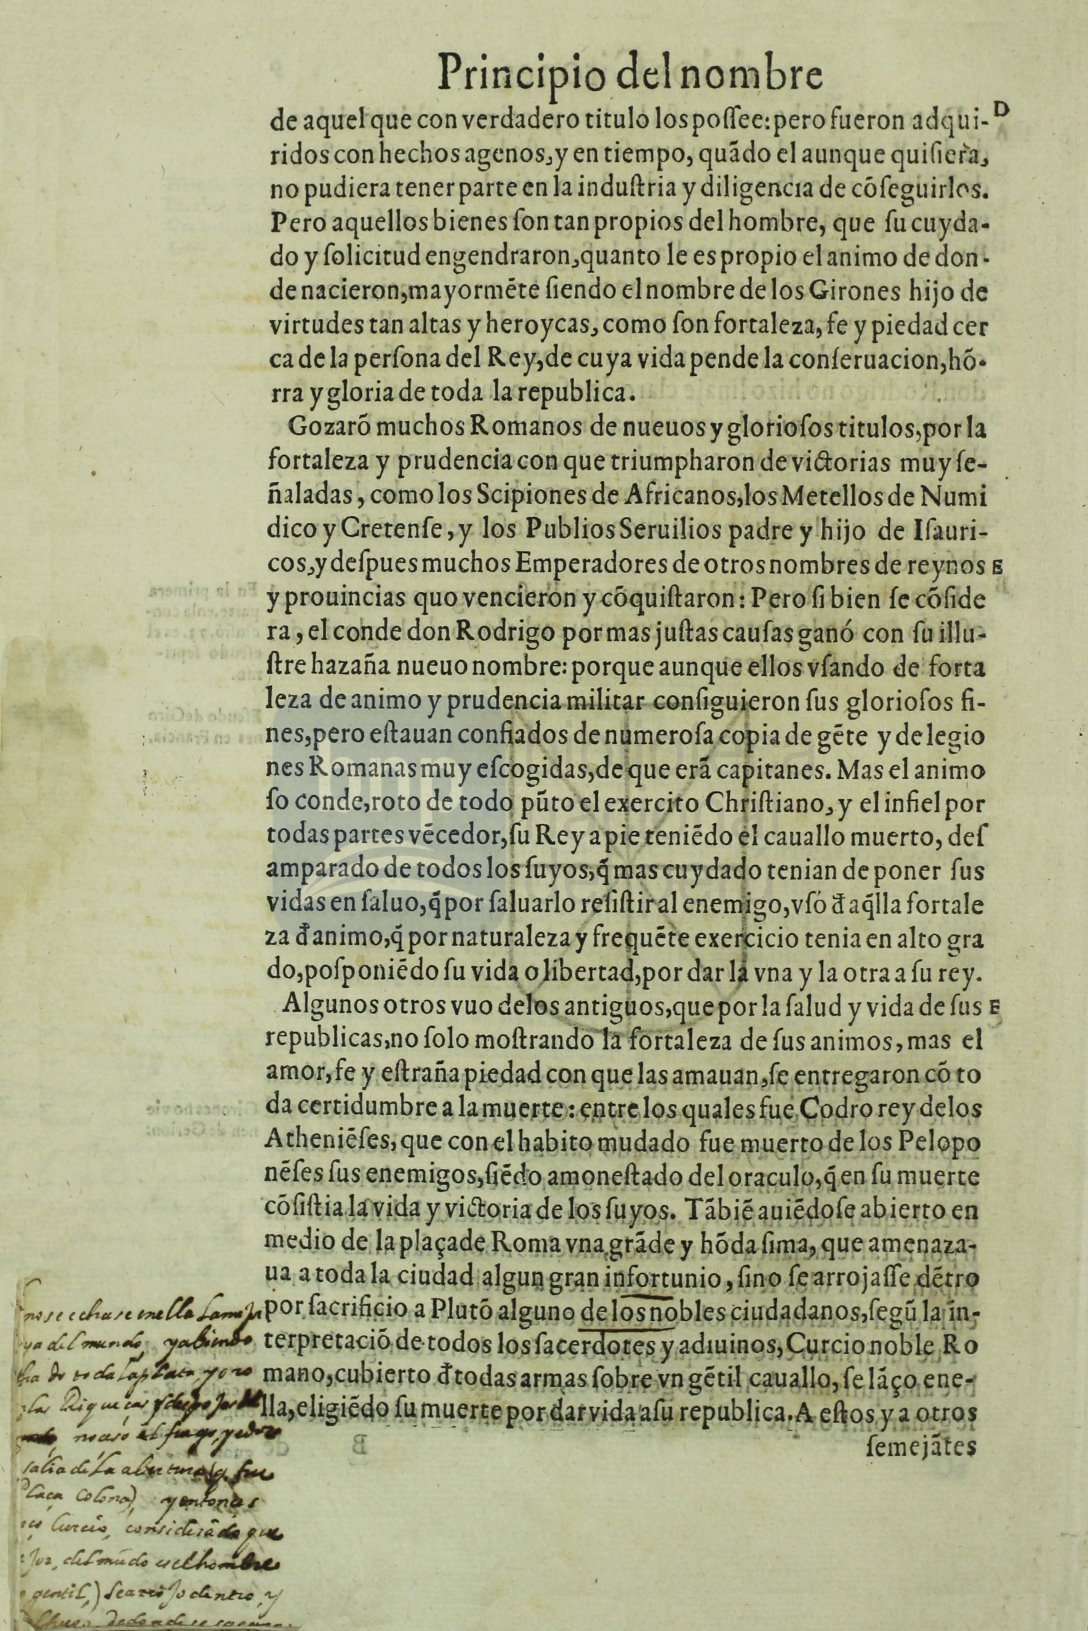 Principio del nombre
de aquel que con verdadero titulo los possee: pero fueron adqui- D
ridos con hechos agenos, y en tiempo, quãdo el aunque quisiera,
no pudiera tener parte en la industria y diligencia de cõseguirlos.
Pero aquellos bienes son tan propios del hombre, que su cuyda-
do y solicitud engendraron, quanto le es propio el animo de don-
de nacieron, mayormẽte siendo el nombre de los Girones hijo de
virtudes tan altas y heroycas, como son fortaleza, fe y piedad cer
ca de la persona del Rey, de cuya vida pende la conseruacion, hõ-
rra y gloria de toda la republica.
Gozarõ muchos Romanos de nueuos y gloriosos titulos, por la
fortaleza y prudencia con que triumpharon de victorias muy se-
ñaladas, como los Scipiones de Africanos, los Metellos de Numi
dico y Cretense, y los Publios Seruilios padre y hijo de Isauri-
cos, y despues muchos Emperadores de otros nombres de reynos E
y prouincias quo vencieron y cõquistaron: Pero si bien se cõside
ra, el conde don Rodrigo por mas justas causas ganó con su illu-
stre hazaña nueuo nombre: porque aunque ellos vsando de forta
leza de animo y prudencia militar consiguieron sus gloriosos fi-
nes, pero estauan confiados de numerosa copia de gẽte y de legio
nes Romanas muy escogidas, de que erã capitanes. Mas el animo
so conde, roto de todo pũto el exercito Christiano, y el infiel por
todas partes vẽcedor, su Rey a pie teniẽdo el cauallo muerto, des
amparado de todos los suyos, q̃ mas cuydado tenian de poner sus
vidas en saluo, q̃ por saluarlo resistir al enemigo, vsó đ aq̃lla fortale
za đ animo, q̃ por naturaleza y frequẽte exercicio tenia en alto gra
do, posponiẽdo su vida o libertad, por dar la vna y la otra a su rey.
Algunos otros vuo delos antiguos, que por la salud y vida de sus E
republicas, no solo mostrando la fortaleza de sus animos, mas el
amor, fe y estraña piedad con que las amauan, se entregaron cõ to
da certidumbre a la muerte: entre los quales fue Codro rey delos
Atheniẽses, que con el habito mudado fue muerto de los Pelopo
nẽses sus enemigos, siẽdo amonestado del oraculo, q̃ en su muerte
cõsistia la vida y victoria de los suyos. Tãbiẽ auiẽdose abierto en
medio de la plaça de Roma vna grãde y hõda sima, que amenaza-
ua a toda la ciudad algun gran infortunio, sino se arrojasse dẽtro
por sacrificio a Plutõ alguno de los nobles ciudadanos, segũ la in-
terpretaciõ de todos los sacerdotes y adiuinos, Curcio noble Ro
mano, cubierto đ todas armas sobre vn gẽtil cauallo, se lãço ene-
lla, eligiẽdo su muerte por dar vida a su republica. A estos y a otros
semejãtes
no se echase en ella la mejor
ya del mundo, y abiendo
plata y oro
Riqueças y
no cesó el fuego,
salia de la abertura (q fue
plaça colona), y entonces
Curcio, considerãdo que
jor, del mũdo es el hombre
gentil,) se arrojo dentro, y